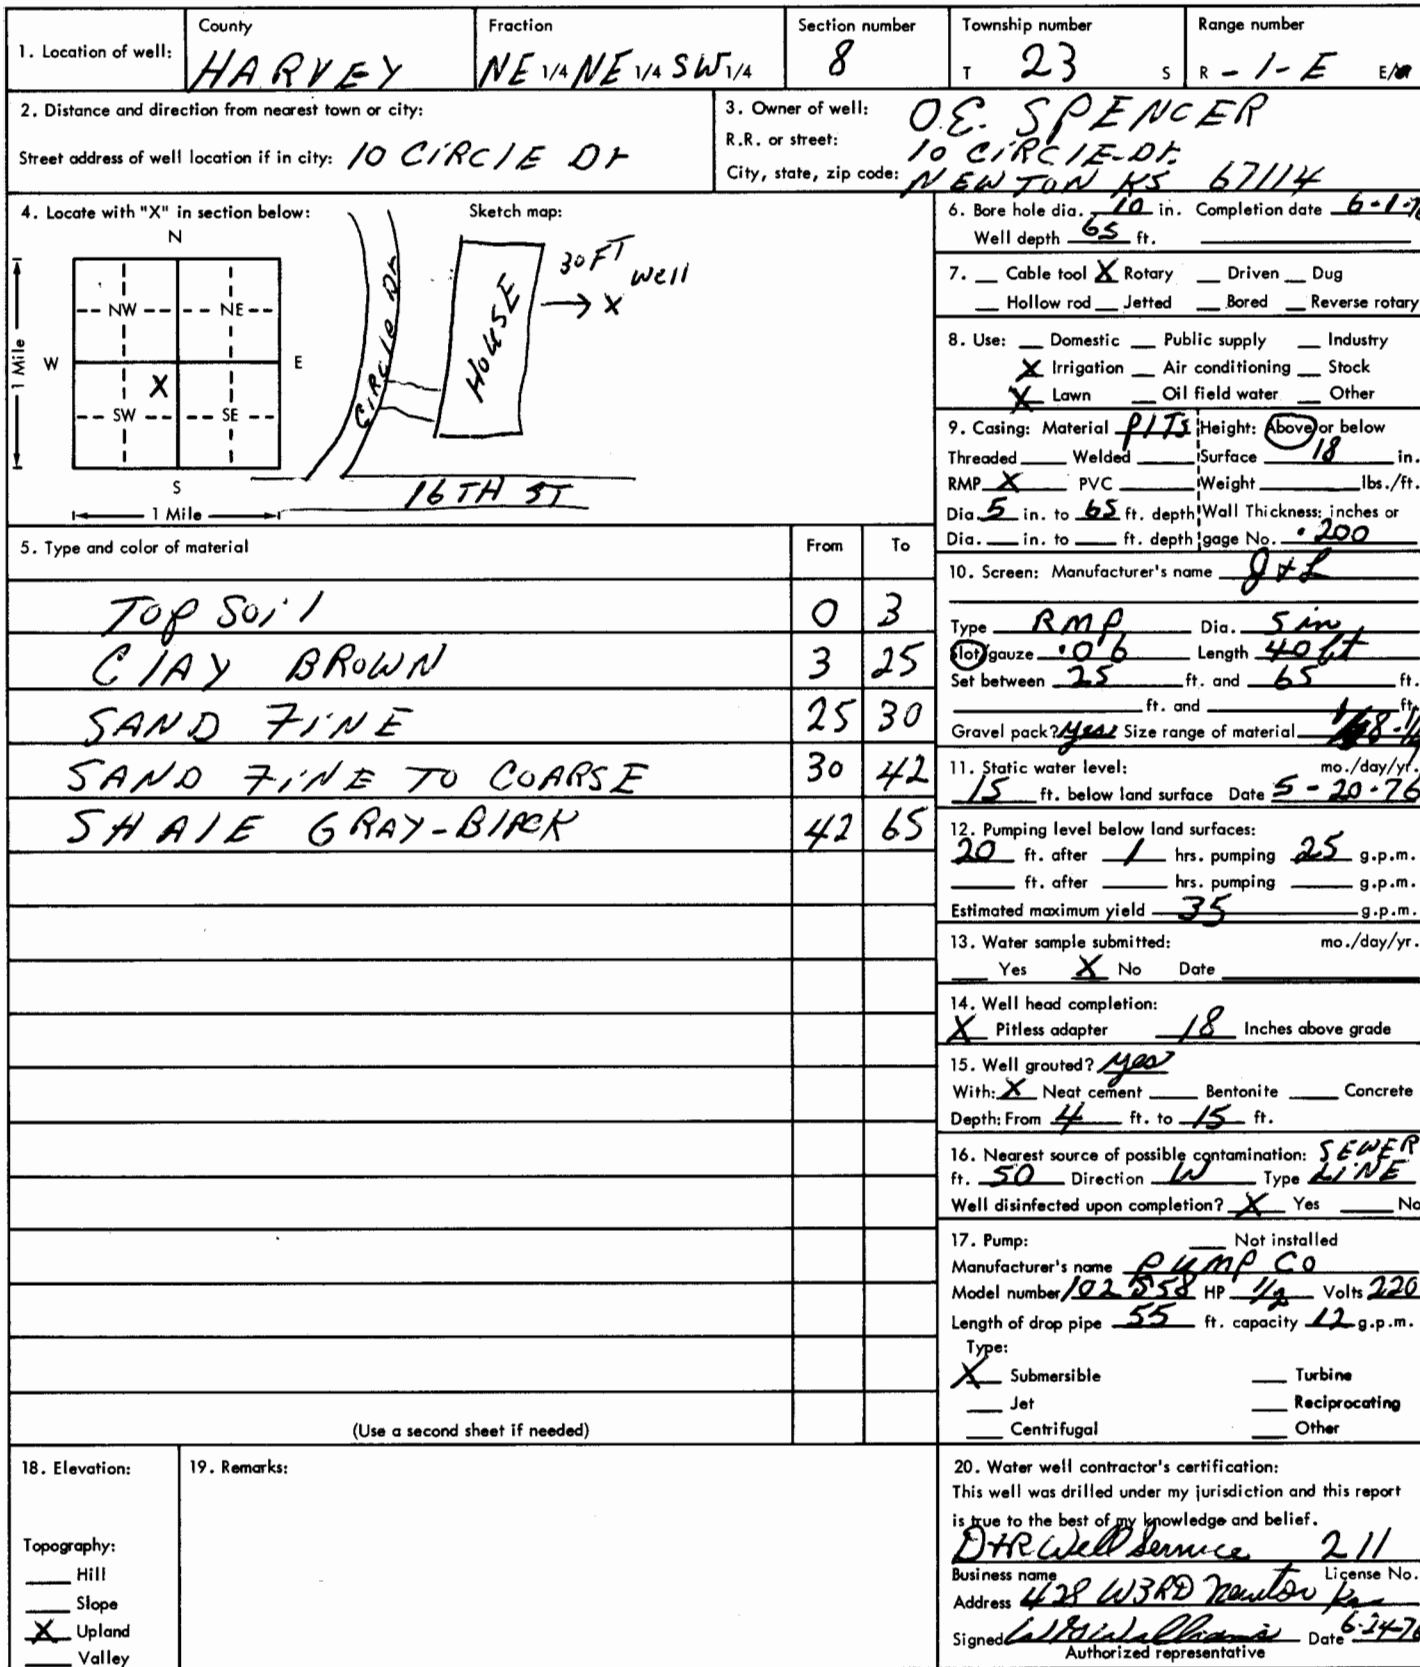 1. Location of well: County HARVEY Fraction NE 1/4 NE 1/4 SW 1/4 Section number 8 Township number T 23 S Range number R - 1 - E E/
2. Distance and direction from nearest town or city:
Street address of well location if in city: 10 CIRCLE Dr
3. Owner of well: O.E. SPENCER
R.R. or street: 10 CIRCLE-Dr.
City, state, zip code: NEWTON KS 67114
4. Locate with "X" in section below:
N
NW NE
W E
X
SW SE
S
1 Mile
1 Mile
Sketch map:
CIRCLE Dr
HOUSE
30 FT
Well
X
16TH ST
5. Type and color of material From To
TOP SOIL 0 3
CLAY BROWN 3 25
SAND FINE 25 30
SAND FINE TO COARSE 30 42
SHALE GRAY-BLACK 42 65
(Use a second sheet if needed)
6. Bore hole dia. 10 in. Completion date 6-1-7
Well depth 65 ft.
7. Cable tool X Rotary Driven Dug
Hollow rod Jetted Bored Reverse rotary
8. Use: Domestic Public supply Industry
X Irrigation Air conditioning Stock
X Lawn Oil field water Other
9. Casing: Material Height: Above or below
Threaded Welded Surface 18 in.
RMP X PVC Weight lbs./ft.
Dia. 5 in. to 65 ft. depth Wall Thickness: inches or
Dia. in. to ft. depth gage No. .200
10. Screen: Manufacturer's name J & L
Type RMP Dia. 5 in
Slot/gauze .06 Length 40 ft
Set between 25 ft. and 65 ft.
ft. and ft.
Gravel pack? yes Size range of material
11. Static water level: mo./day/yr.
15 ft. below land surface Date 5-20-76
12. Pumping level below land surfaces:
20 ft. after 1 hrs. pumping 25 g.p.m.
ft. after hrs. pumping g.p.m.
Estimated maximum yield 35 g.p.m.
13. Water sample submitted: mo./day/yr.
Yes X No Date
14. Well head completion:
X Pitless adapter 18 Inches above grade
15. Well grouted? yes
With: X Neat cement Bentonite Concrete
Depth: From 4 ft. to 15 ft.
16. Nearest source of possible contamination: SEWER
ft. 50 Direction W Type LINE
Well disinfected upon completion? X Yes No
17. Pump: Not installed
Manufacturer's name PUMP CO
Model number 102558 HP 1/2 Volts 220
Length of drop pipe 55 ft. capacity 12 g.p.m.
Type:
X Submersible Turbine
Jet Reciprocating
Centrifugal Other
18. Elevation:
Topography:
Hill
Slope
X Upland
Valley
19. Remarks:
20. Water well contractor's certification:
This well was drilled under my jurisdiction and this report
is true to the best of my knowledge and belief.
D+R Well Service 211
Business name License No.
Address 428 W 3RD Newton
Signed Williams Date 6-24-76
Authorized representative